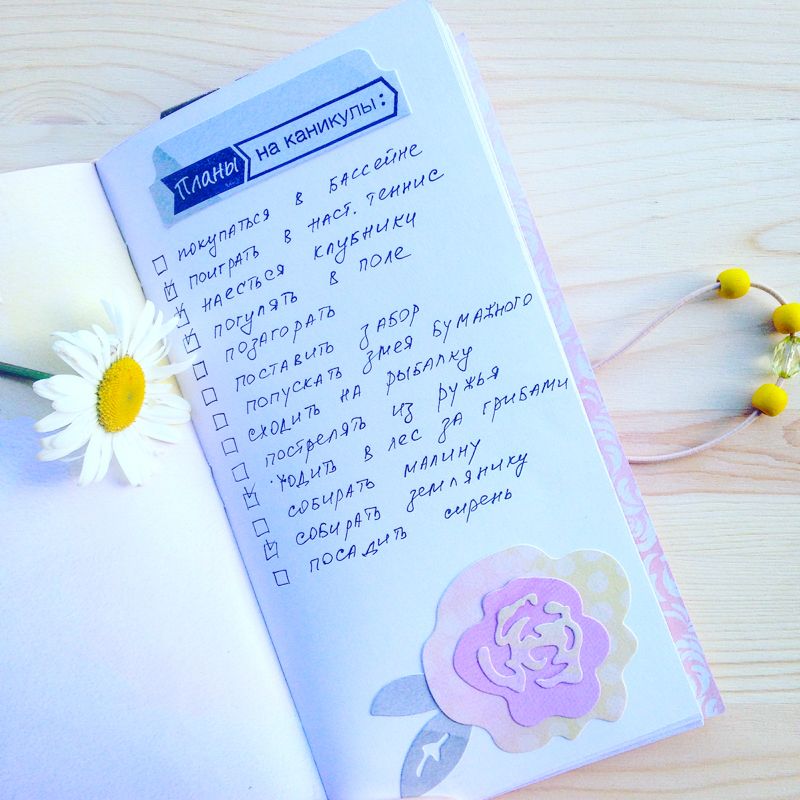 Планы на каникулы:
покупаться в бассейне
поиграть в наст. теннис
наесться клубники
погулять в поле
позагорать
поставить забор
попускать змея бумажного
сходить на рыбалку
пострелять из ружья
ходить в лес за грибами
собирать малину
собирать землянику
посадить сирень